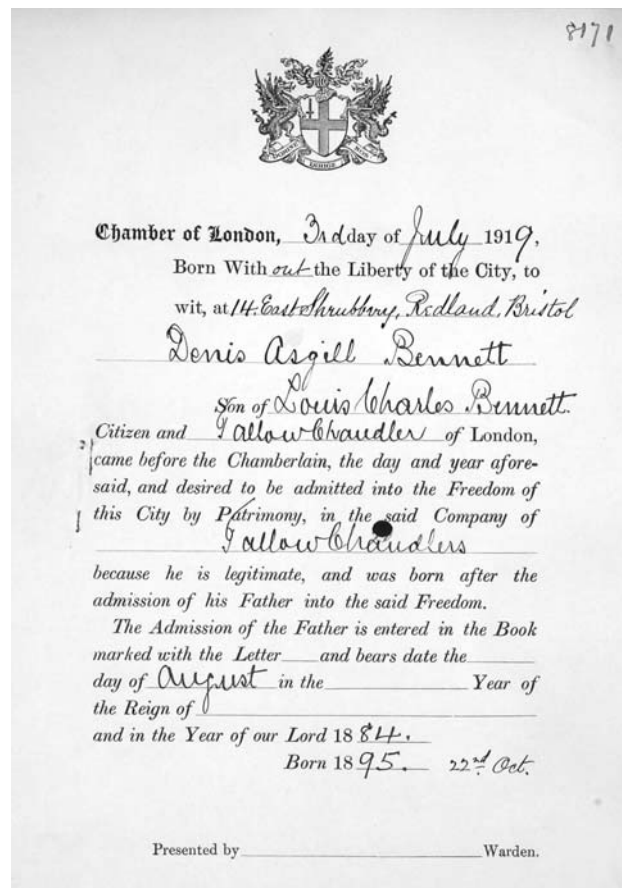 8171
DOMINE DIRIGE NOS
Chamber of London, 3rd day of July 1919,
Born With out the Liberty of the City, to
wit, at 14. East Shrubbery, Redland, Bristol
Denis Asgill Bennett
Son of Louis Charles Bennett.
Citizen and Tallow Chandler of London,
came before the Chamberlain, the day and year afore-
said, and desired to be admitted into the Freedom of
this City by Patrimony, in the said Company of
Tallow Chandlers
because he is legitimate, and was born after the
admission of his Father into the said Freedom.
The Admission of the Father is entered in the Book
marked with the Letter and bears date the
day of August in the Year of
the Reign of
and in the Year of our Lord 1884.
Born 1895. 22nd Oct.
Presented by Warden.